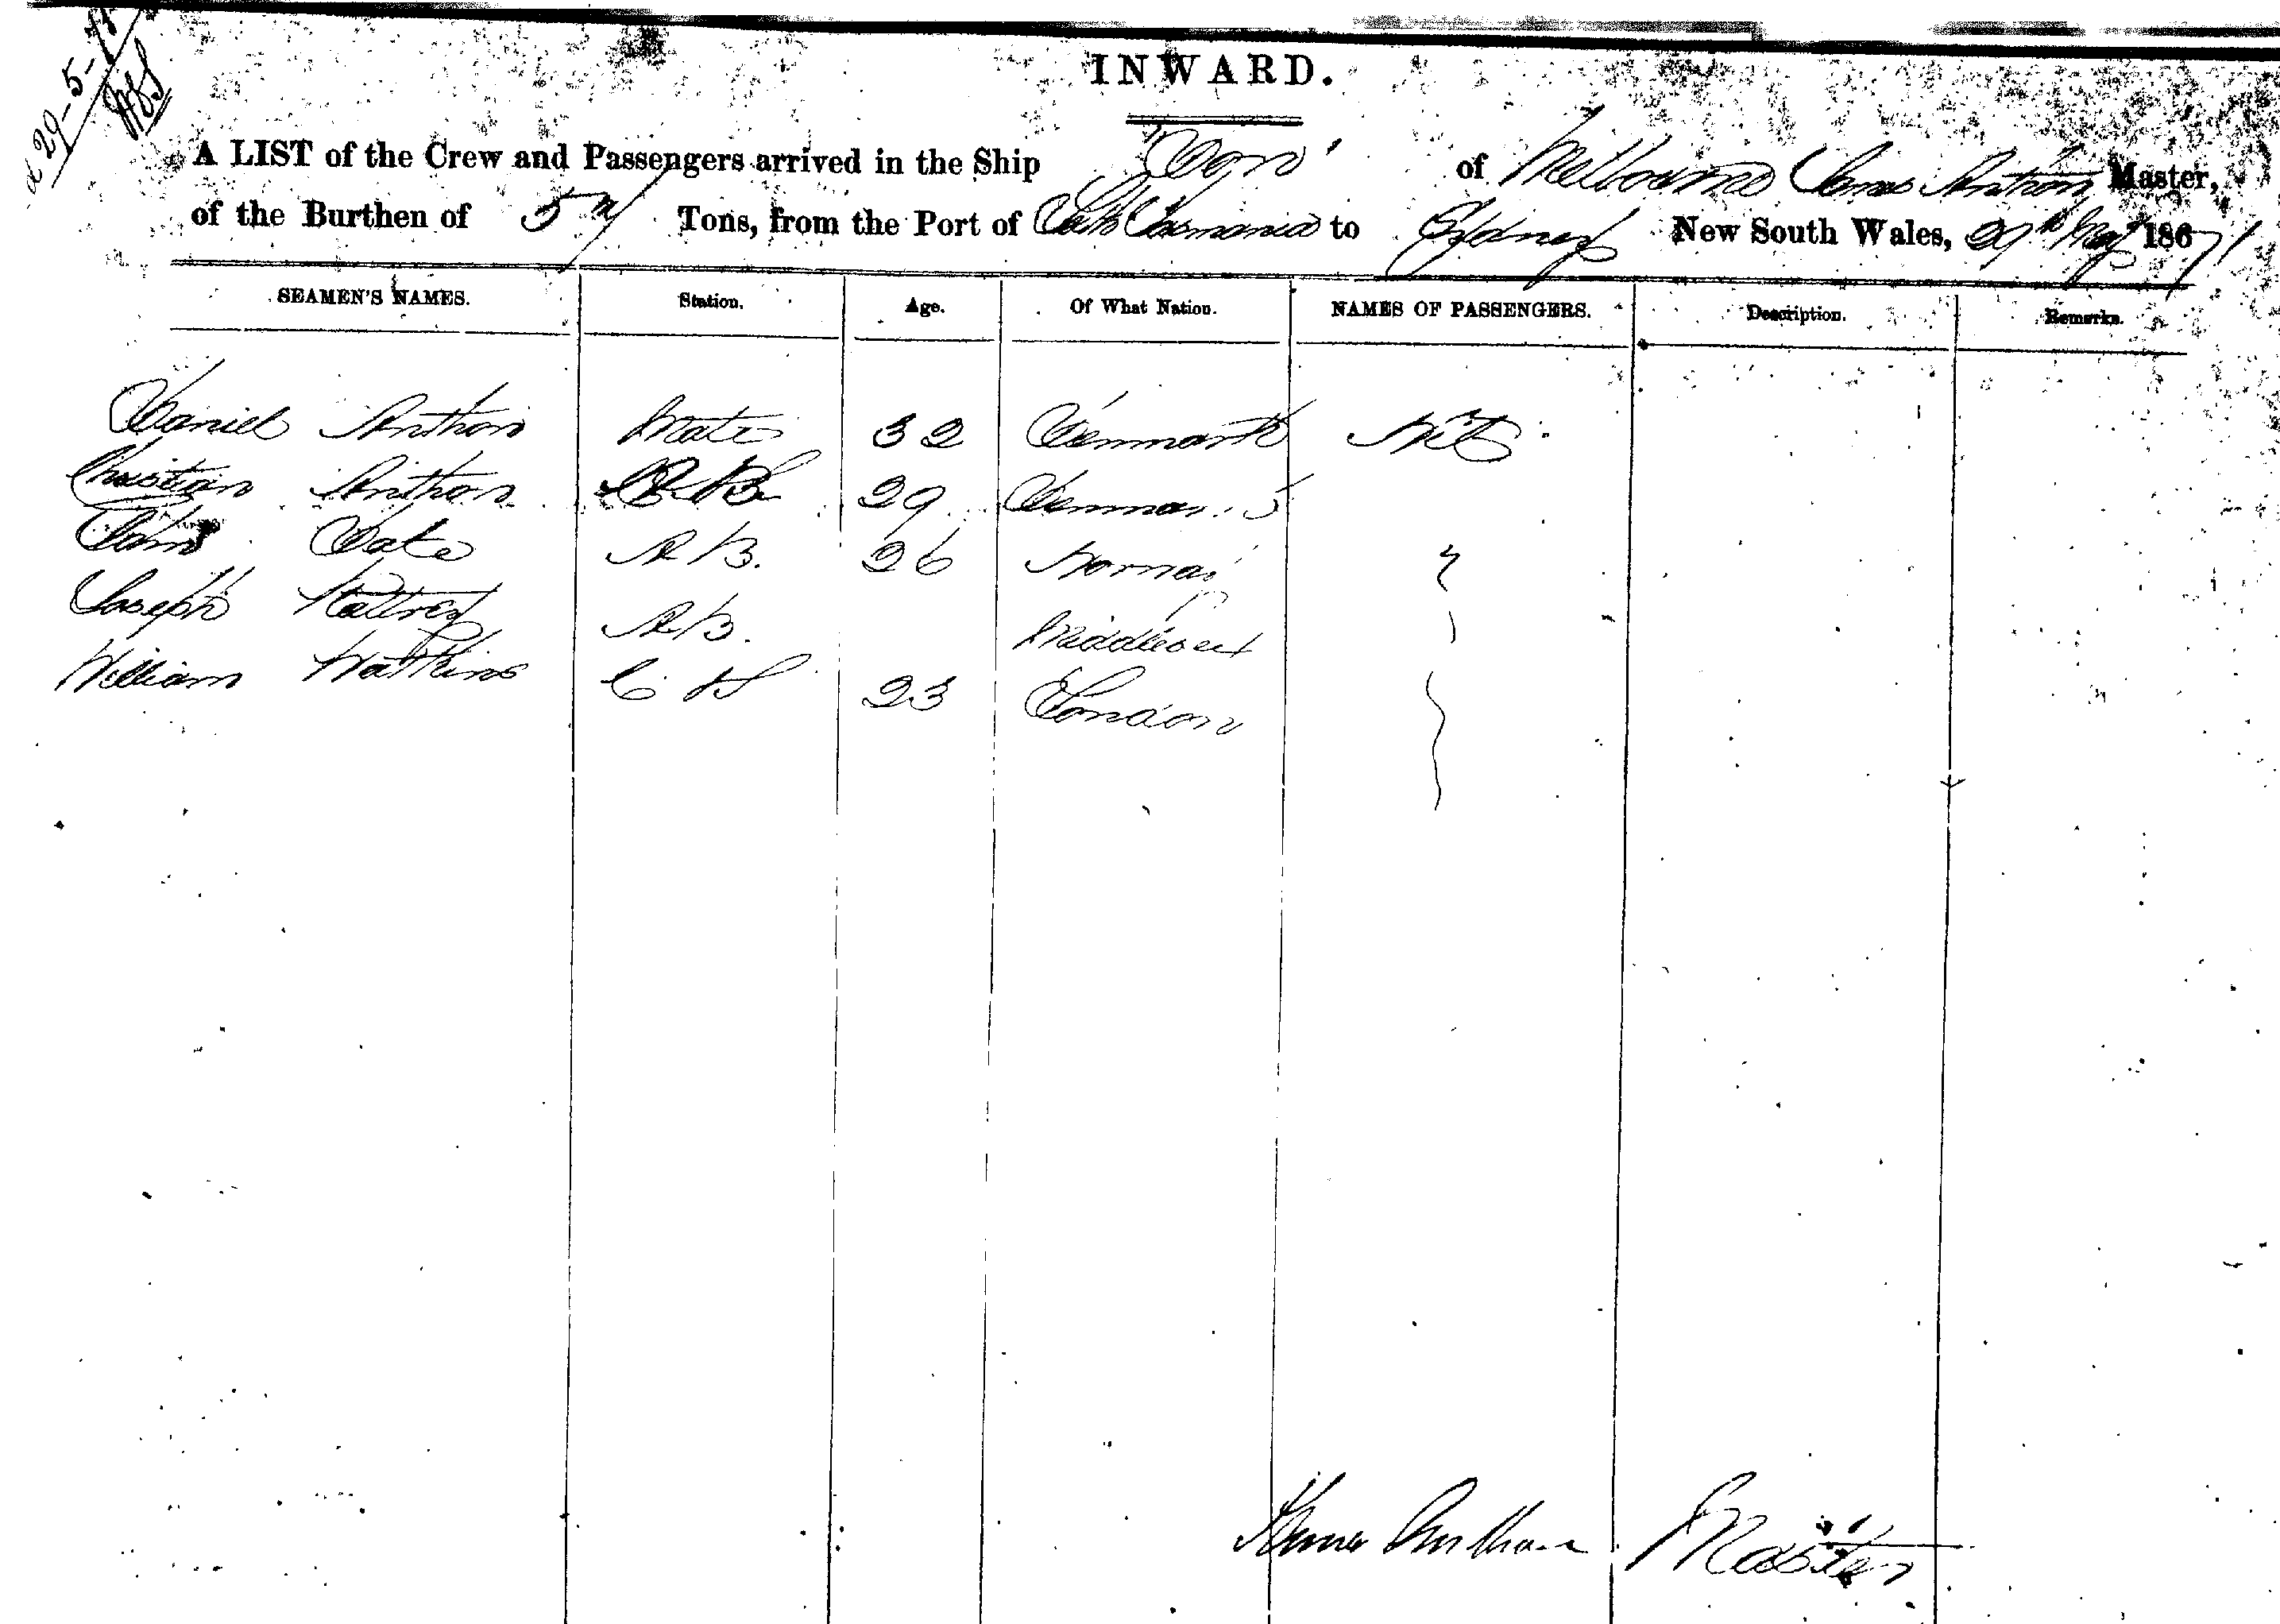 29-5-71
INWARD.
A LIST of the Crew and Passengers arrived in the Ship "Don" of Melbourne James Anthon Master,
of the Burthen of Tons, from the Port of Tasmania to Sydney New South Wales, 29th May 1871
SEAMEN'S NAMES. Station. Age. Of What Nation. NAMES OF PASSENGERS. Description. Remarks.
Daniel Anthon Mate 32 Denmark Nil
Christian Anthon A B 29 Denmark
John A B. 26 Norway
Joseph A B. Middlesex
William Watkins 23 London
James Anthon Master